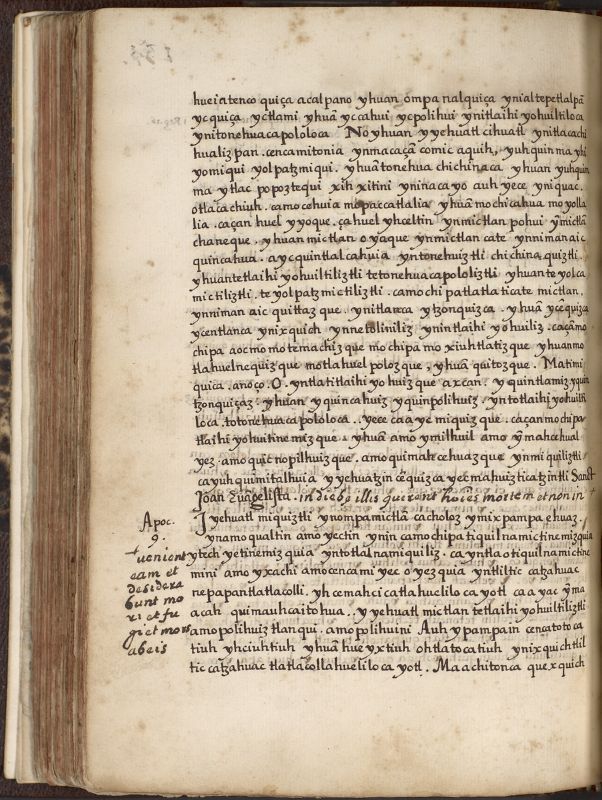 hueiatenco quiça acalpano yhuan ompa nalquiça ynialtepetlalpã
yc quiça yctlami yhuã yc cahui ycpolihui ynitlaihi yohuiltiloca
ynitonehuacapololoca No yhuan yyehuatl cihuatl ynitlacachi
hualizpan. cenca mitonia ynmacaçã comic aquih, yuhquinma yhi
yomiqui yolpatzmiqui. yhuã tonehua chichinaca yhuan yuhquin
ma ytlac popoztequi xih xitini yninacayo auh yece yniquac.
otlacachiuh. camocehuia mopaccatlalia yhuã mochicahua moyolla
lia. caçan huel yyoque. ça huel yhceltin ynmictlan pohui ỹmictlã
chaneque. yhuan mictlan oyaque ynmictlan cate ynniman aic
quincahua. ayc quintlalcahuia yntonehuiztli chichinaquiztli.
yhuan tetlaihiyohuiltiliztli tetonehuacapololiztli yhuan teyolca
mictiliztli. teyolpatzmictiliztli. camochipa tlatlaticate mictlan.
ynniman aic quittazque. ynitlanca ytzonquizca. yhuã ycẽquizca
ycentlanca ynixquich ynnetoliniliz ynintlaihiyohuiliz. caçãmo
chipa aocmo motemachizque mochipa moxiuhtlatizque yhuanmo
tlahuelnequizque motlahuelpolozque, yhuã quitozque. Matimi
quica. anoço. O. yntlatitlaihiyohuizque axcan. yquintlamiz yquin
tzonquiçaz: yhuan yquincahuiz yquinpolihuiz. yntotlaihiyohuilti
loca. totonehuacapololoca.. yece ca aycmiquizque. caçan mochipa
tlaihiyohuitinemizque. yhuã amo ymilhuil amo ỹmahcehual
yez. amo quicnopilhuizque. amo quimahcehuazque ynmiquiliztli
ca yuh quimitalhuia yyehuatzin cẽquizca yectmahuizticatzintli Sanct
Joan Euãgelista. in diebꝰ illis querent hoĩes mortem et non in †
Jyehuatl miquiztli ynompa mictlã cacholoz ymixpampa ehuaz.
ynamo qualtin amo yectin ynin camochipa tiquilnamictinemizquia
ytech yetinemizquia yntotlalnamiquiliz. ca yntla otiquilnamictine
mini amo yxachi amo cenca miyec oyezquia yntliltic catzahuac
nepapan tlatlacolli. yhcemahcicatlahuelilocayotl ca ayac ỹma
acah quimauhcaitohua.. yyehuatl mictlan tetlaihiyohuiltiliztli
amo polihuiztlanqui. amo polihuini Auh ypampa in cenca totoca
tiuh yhciuhtiuh yhuã hueyxtiuh ohtlatocatiuh ynixquich tlil
tic catzahuac tlatlacollahuelilocayotl. Maachitonca quexquich
Apoc.
9.
† uenient
eam et
desidera
bunt mo
ri et fu
giet mors
ab eis